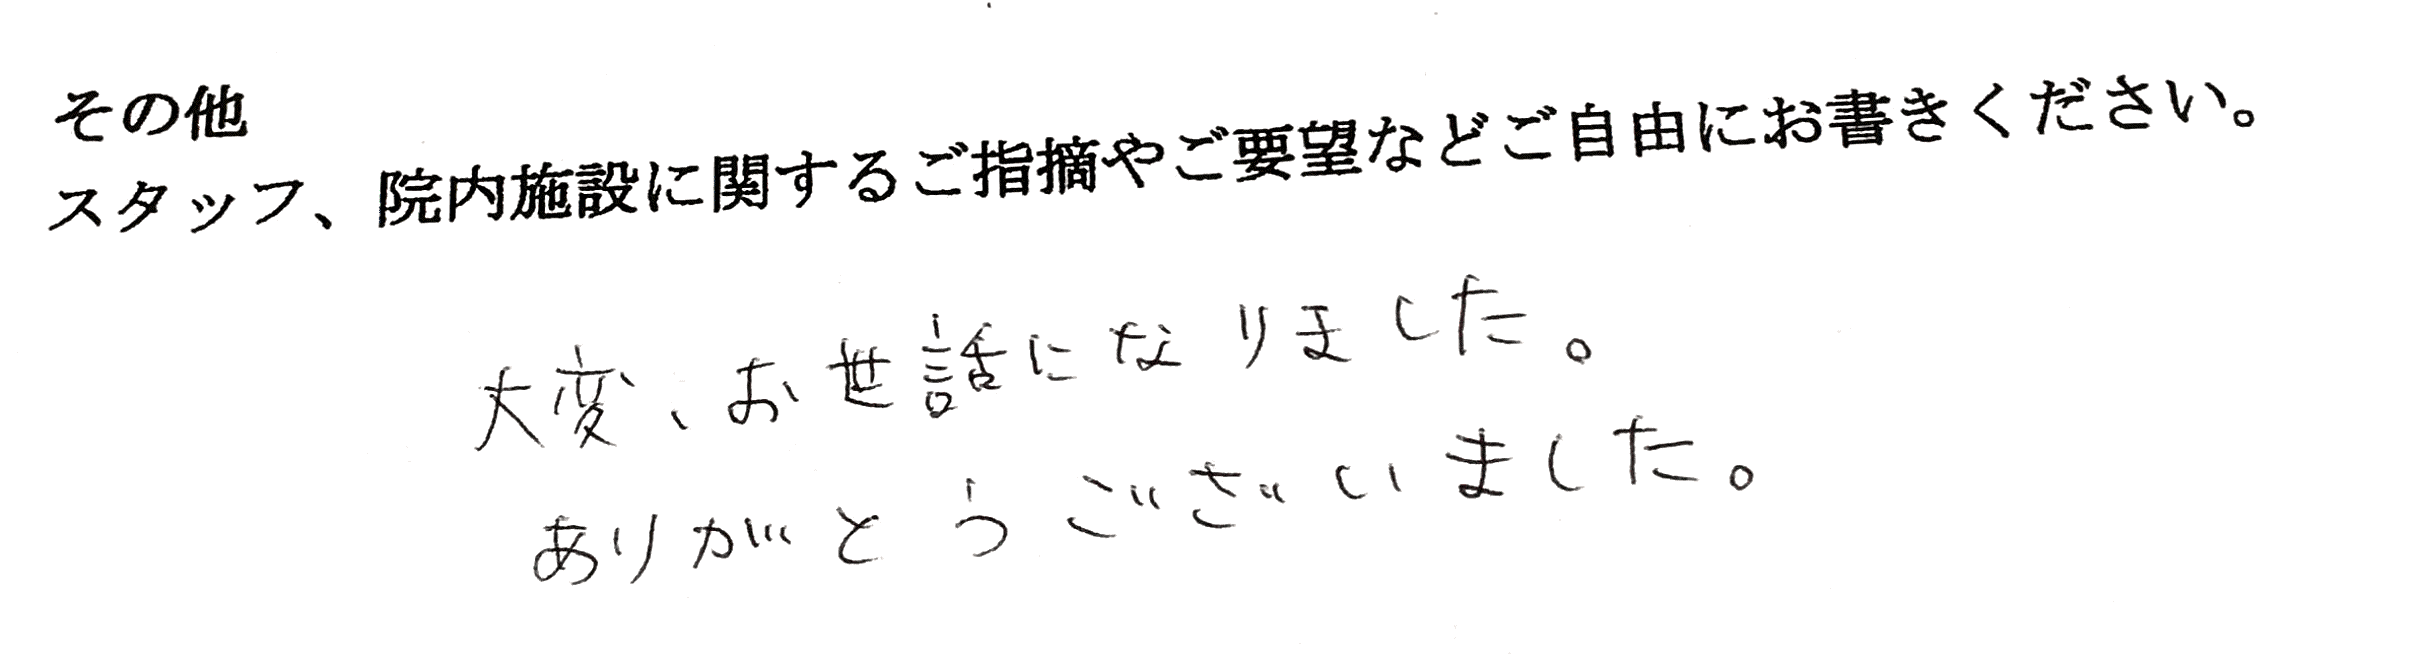 その他
スタッフ、院内施設に関するご指摘やご要望などご自由にお書きください。
大変、お世話になりました。
ありがとうございました。